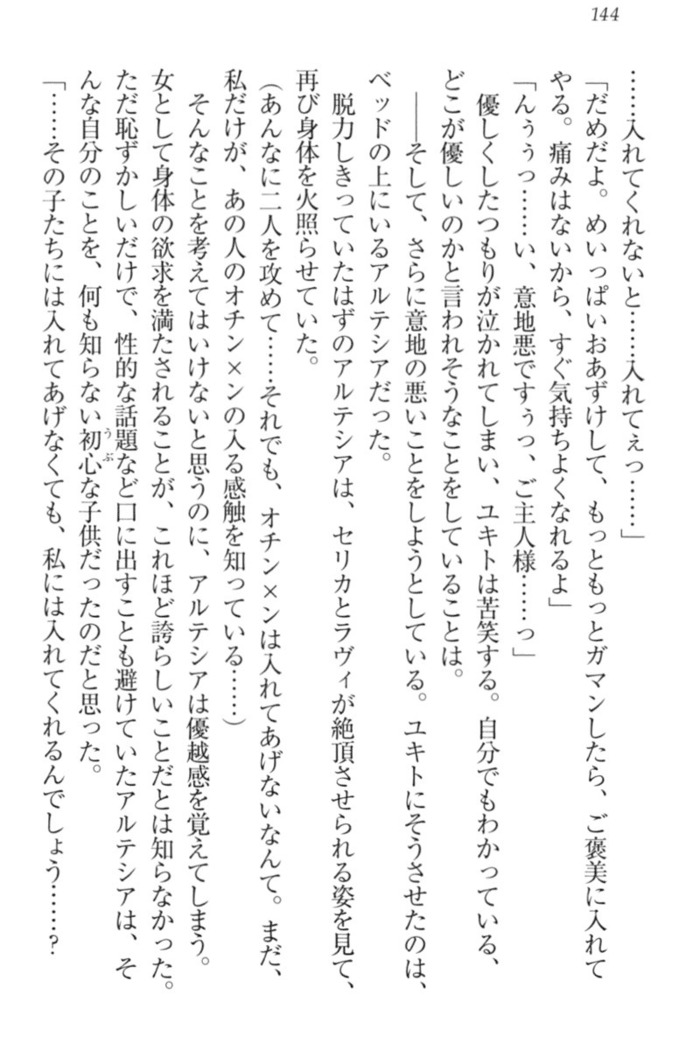 144
……入れてくれないと……入れてぇっ……」
「だめだよ。めいっぱいおあずけして、もっともっとガマンしたら、ご褒美に入れて
やる。痛みはないから、すぐ気持ちよくなれるよ」
「んぅぅっ……い、意地悪ですぅっ、ご主人様……っ」
優しくしたつもりが泣かれてしまい、ユキトは苦笑する。自分でもわかっている、
どこが優しいのかと言われそうなことをしていることは。
――そして、さらに意地の悪いことをしようとしている。ユキトにそうさせたのは、
ベッドの上にいるアルテシアだった。
脱力しきっていたはずのアルテシアは、セリカとラヴィが絶頂させられる姿を見て、
再び身体を火照らせていた。
（あんなに二人を攻めて……それでも、オチン×ンは入れてあげないなんて。まだ、
私だけが、あの人のオチン×ンの入る感触を知っている……）
そんなことを考えてはいけないと思うのに、アルテシアは優越感を覚えてしまう。
女として身体の欲求を満たされることが、これほど誇らしいことだとは知らなかった。
ただ恥ずかしいだけで、性的な話題など口に出すことも避けていたアルテシアは、そ
んな自分のことを、何も知らない初心うぶな子供だったのだと思った。
「……その子たちには入れてあげなくても、私には入れてくれるんでしょう……？